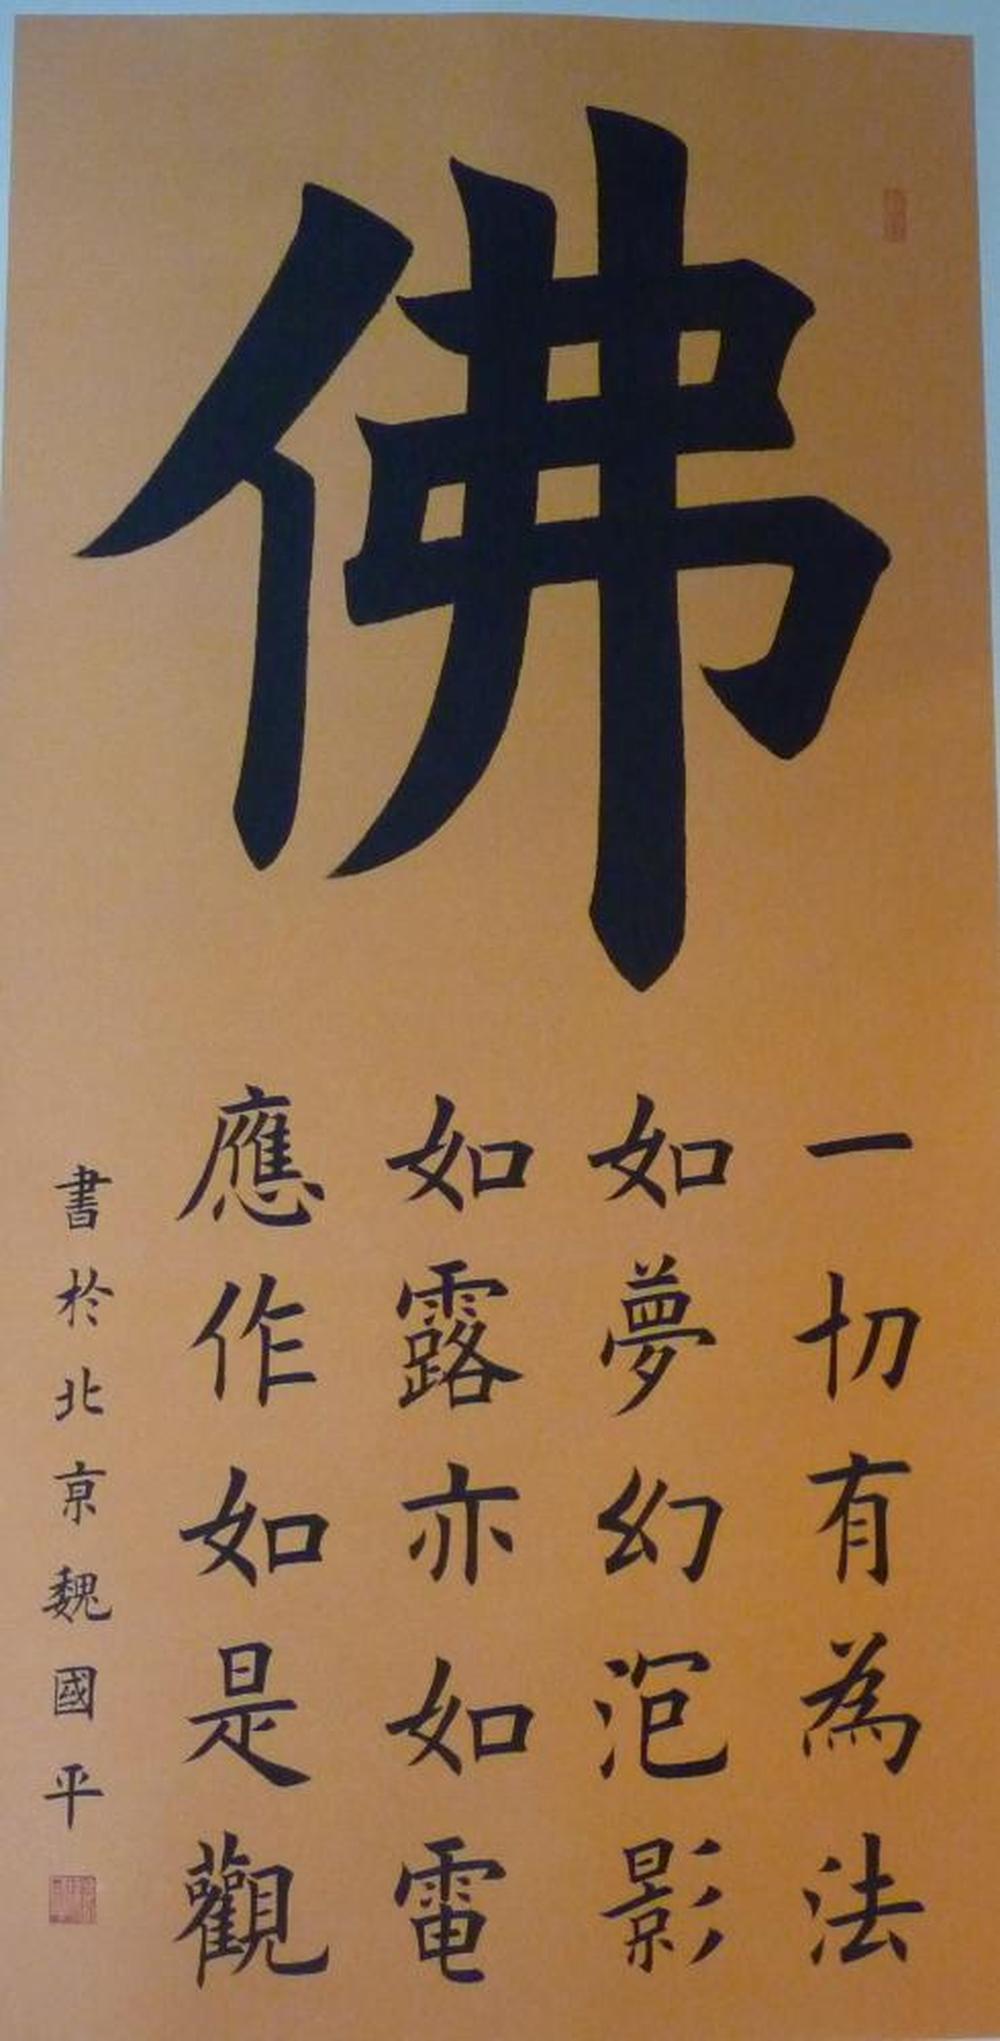 佛
一切有為法
如夢幻泡影
如露亦如電
應作如是觀
書於北京魏國平